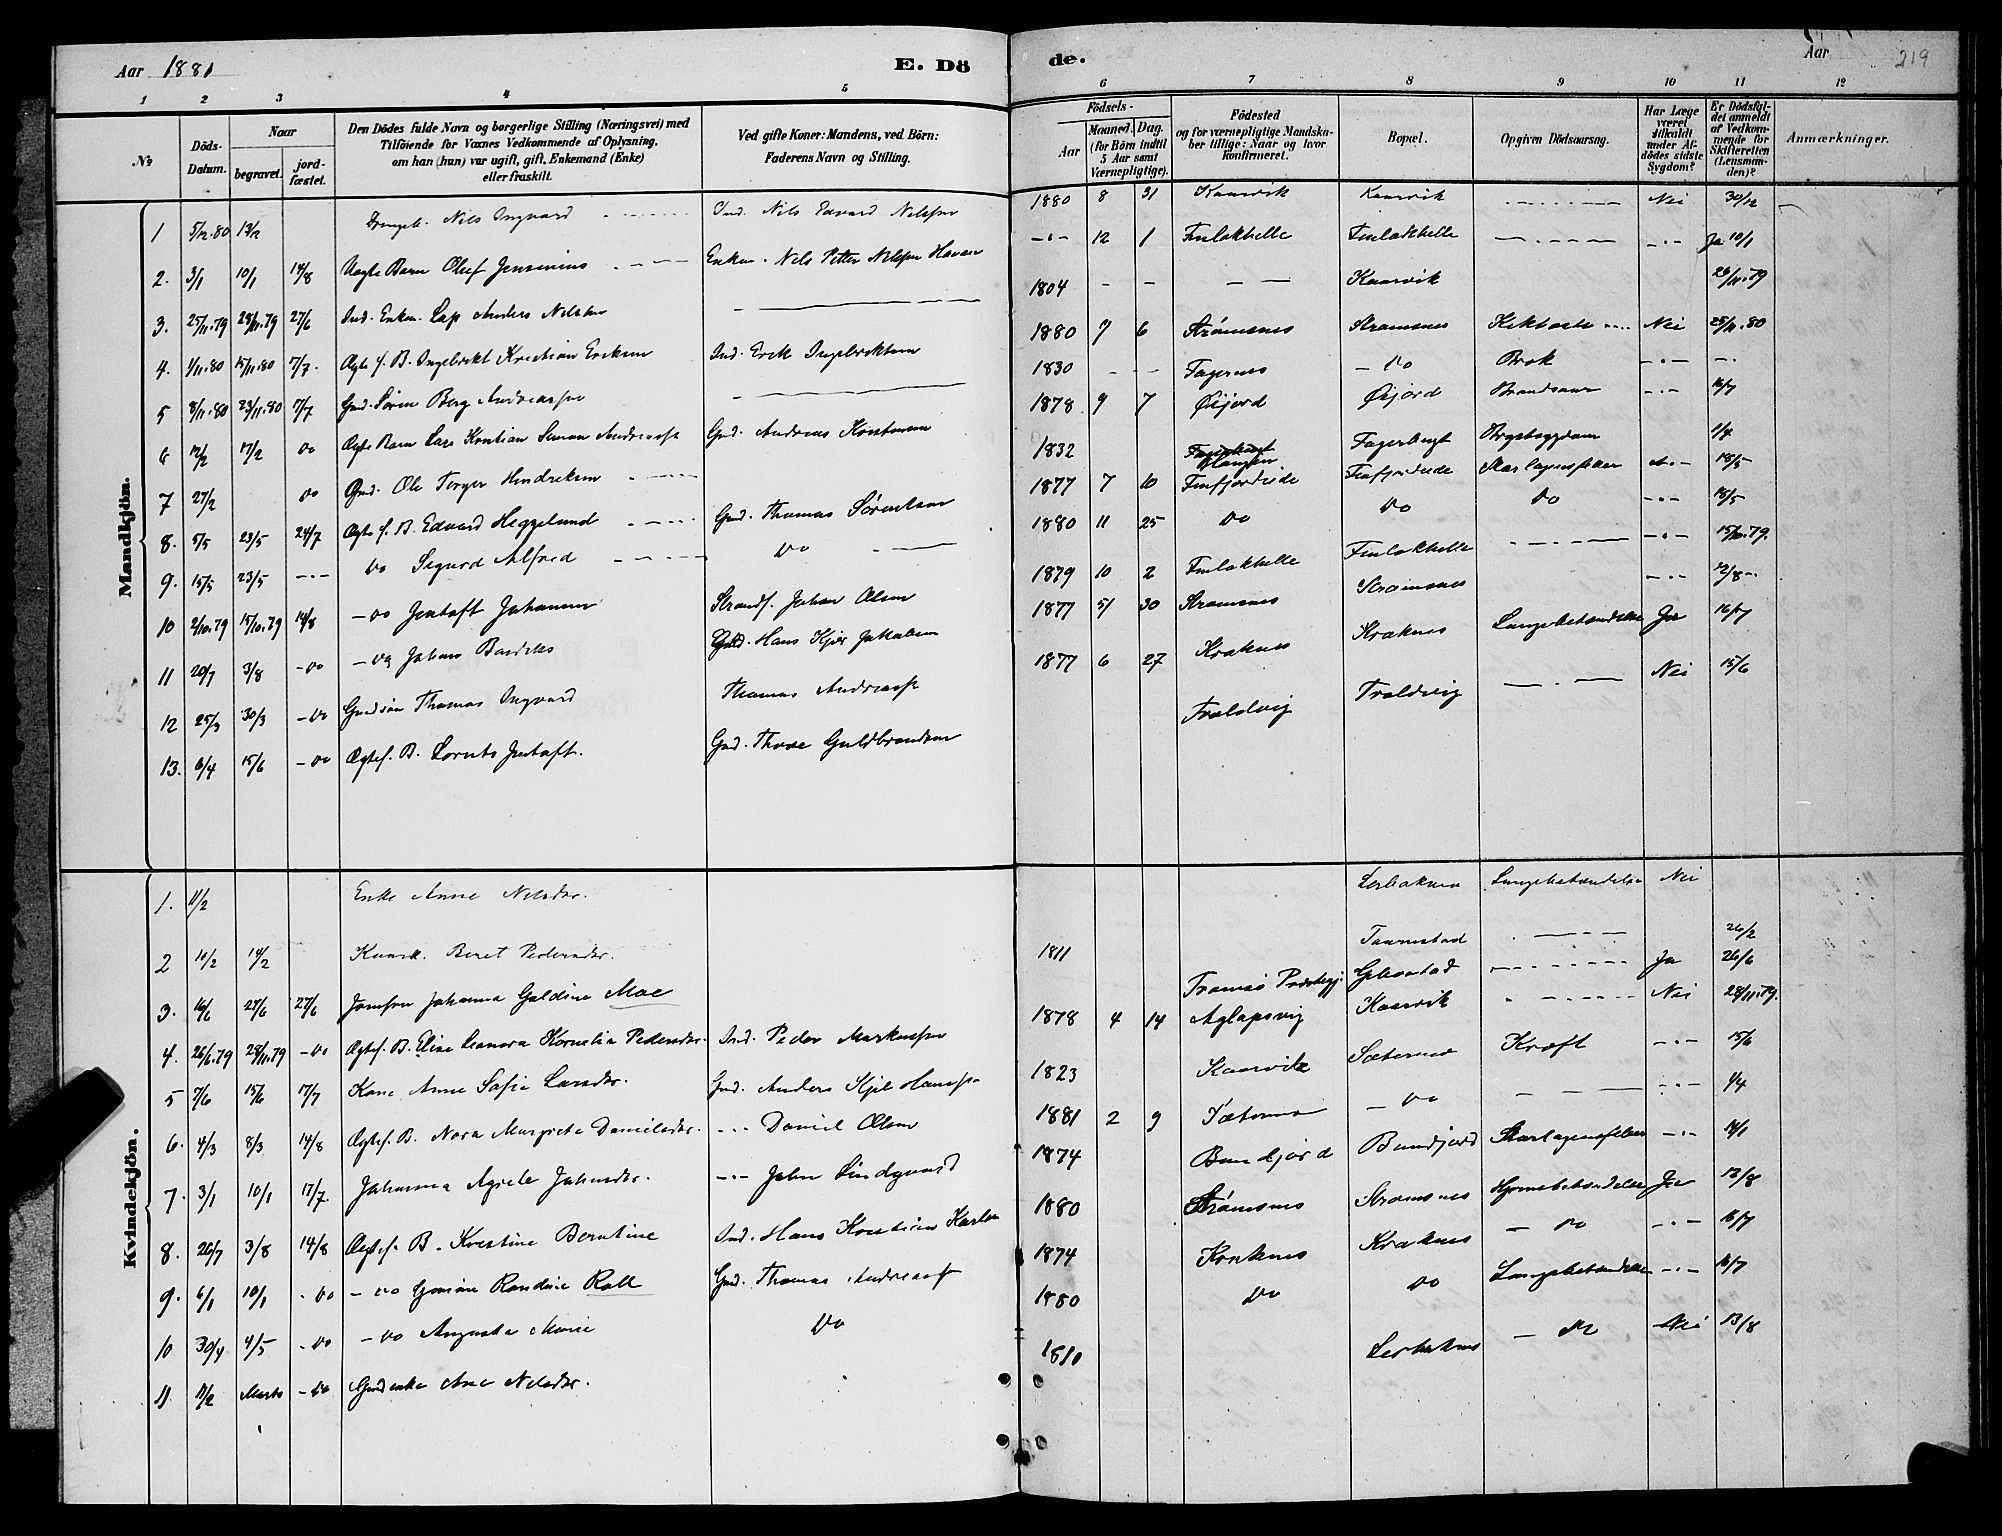 Aar 1881
E. Dö
de.
Aar
219
1 2 3 4 5 6 7 8 9 10 11 12
№
Döds-Datum.
Naar
begravet.
jord-fæstet.
Den Dödes fulde Navn og borgerlige Stilling (Næringsvei) med
Tilföiende for Voxnes Vedkommende af Oplysning,
om han (hun) var ugift, gift, Enkemand (Enke)
eller fraskilt.
Ved gifte Koner: Mandens, ved Börn:
Faderens Navn og Stilling.
Födsels-
Aar
Maaned.
Dag.
(for Börn indtil
5 Aar samt
Værnepligtige).
Födested
og for værnepligtige Mandska-
ber tillige: Naar og hvor
konfirmeret.
Bopæl.
Opgiven Dödsaarsag.
Har Læge
været
tilkaldt
under Af-
dödes sidste
Sygdom?
Er Dödsfal-
det anmeldt
af Vedkom-
mende for
Skifteretten
(Lensman-
den)?
Anmærkninger.
Mandkjön.
1 5/12.80 13/2 Nils Ingvard Ind. Nils Edvard Nilssen 1880 8 31 Kaarvik Kaarvik Nei 30/12
2. 3/1 10/1 14/8 Uægte Barn Oluf Jensenius Enkem. Nils Petter Nilssen 12 1 Finlakhelle Finlakhelle Ja 10/1
3. 25/11.79 28/11.79 27/6 Ind. Enkem. Lap Anders Nilssen 1804 Kaarvik 29/11.79
4. 1/11.80 15/11.80 7/7. Ægte f. B. Ingebrikt Kristian Eriksen Ind. Erik Ingebriktsen 1880 7 6 Strømsnes Strømsnes Nei 25/11.80
5 8/11.80 23/11.80 7/7 Gmd. Søren Berg Andreassen 1830 Fagernes Do Brok
6 12/2 17/2 Do Ægte Barn Lars Kristian Simon Andreass. Gmd. Andreas Kristensen 1878 9 7 Øijord Øijord 16/7
7 27/2 Do Gmd. Ole Torger Hendriksen 1832 Fagerlungt 1/4
8. 5/5 23/5 24/7 Ægte f. B. Edvard Heggelund Gmd. Thomas Sørensen 1877 7 10 Finfjordeide Finfjordeide Skarlagensfeber 18/5
9. 15/5 23/5 Do Sigurd Alfred Do 1880 11 25 Do Do Do 18/5
10 2/10.79 15/10.79 14/8 Do Jentoft Johansen Strands. Johan Olsen 1879 10 2 Finlakhelle Finlakhelle 15/10.79.
11 20/7 3/8 Do Johan Gmd. Hans Jakobsen 1877 5 30 Strømsnes Strømsnes 12/8
12 25/3 30/3 Do Gmdsøn Thomas Ingvard Thomas Andreass. Kraknes Kraknes Lungebetændelse Ja 16/7
13. 6/4 15/6 Do Ægtef. B. Lorents Jentoft. Gmd. Thore Guldbrandsen 1877 6 27 Troldvig Troldvig Nei 15/6
Kvindekjön.
1. 11/2 Enke Anne Nilsdtr. Lungebetændelse Nei
2 10/2 14/2 Beret Pedersdtr. 1811 Taarnstad 26/2
3. 16/6 27/6 27/6 Jomfru Johanna Galdine Moe Tromsø Præstegj. Ja 26/6
4. 26/6.79 28/11.79 Do Ægtef. B. Elise Leanora Kornelia Pedersdtr. Ind. Peder Markussen 1878 4 14 Aglapsvig Kaarvik Nei 28/11.79.
5 7/6 15/6 17/7 Kone Anne Sofie Larsdtr. Gmd. Anders Kjil Hanssen 1823 Kaarvik Sæternes Kræft 15/6
6. 4/3 8/3 14/8 Ægtef. B. Nora Margrete Danielsdtr. Daniel Olsen 1881 2 9 Do 1/4
7. 3/1 10/1 17/7. Johanna Agrete Johnsdtr. John Lindgaard 1874 Bundjord Bundjord Skarlagensfeber 14/1
8. 26/7 3/8 14/8 Ægtef. B. Kristine Berntine Ind. Hans Kristian Karlsen 1880 Strømsnes Strømsnes Hjernebetændelse Ja 12/8
9. 6/1 10/1 Do Do Randine Roll Gmd. Thomas Andreass. 1874 Kraknes Kraknes Do 16/7
10 30/4 4/5 Do Do Augusta Marie Do 1880 Do Do Lungebetændelse 16/7
11. 11/2 Marts Do Gmdenke Ane Nilsdtr. 1810 Do Nei 13/8